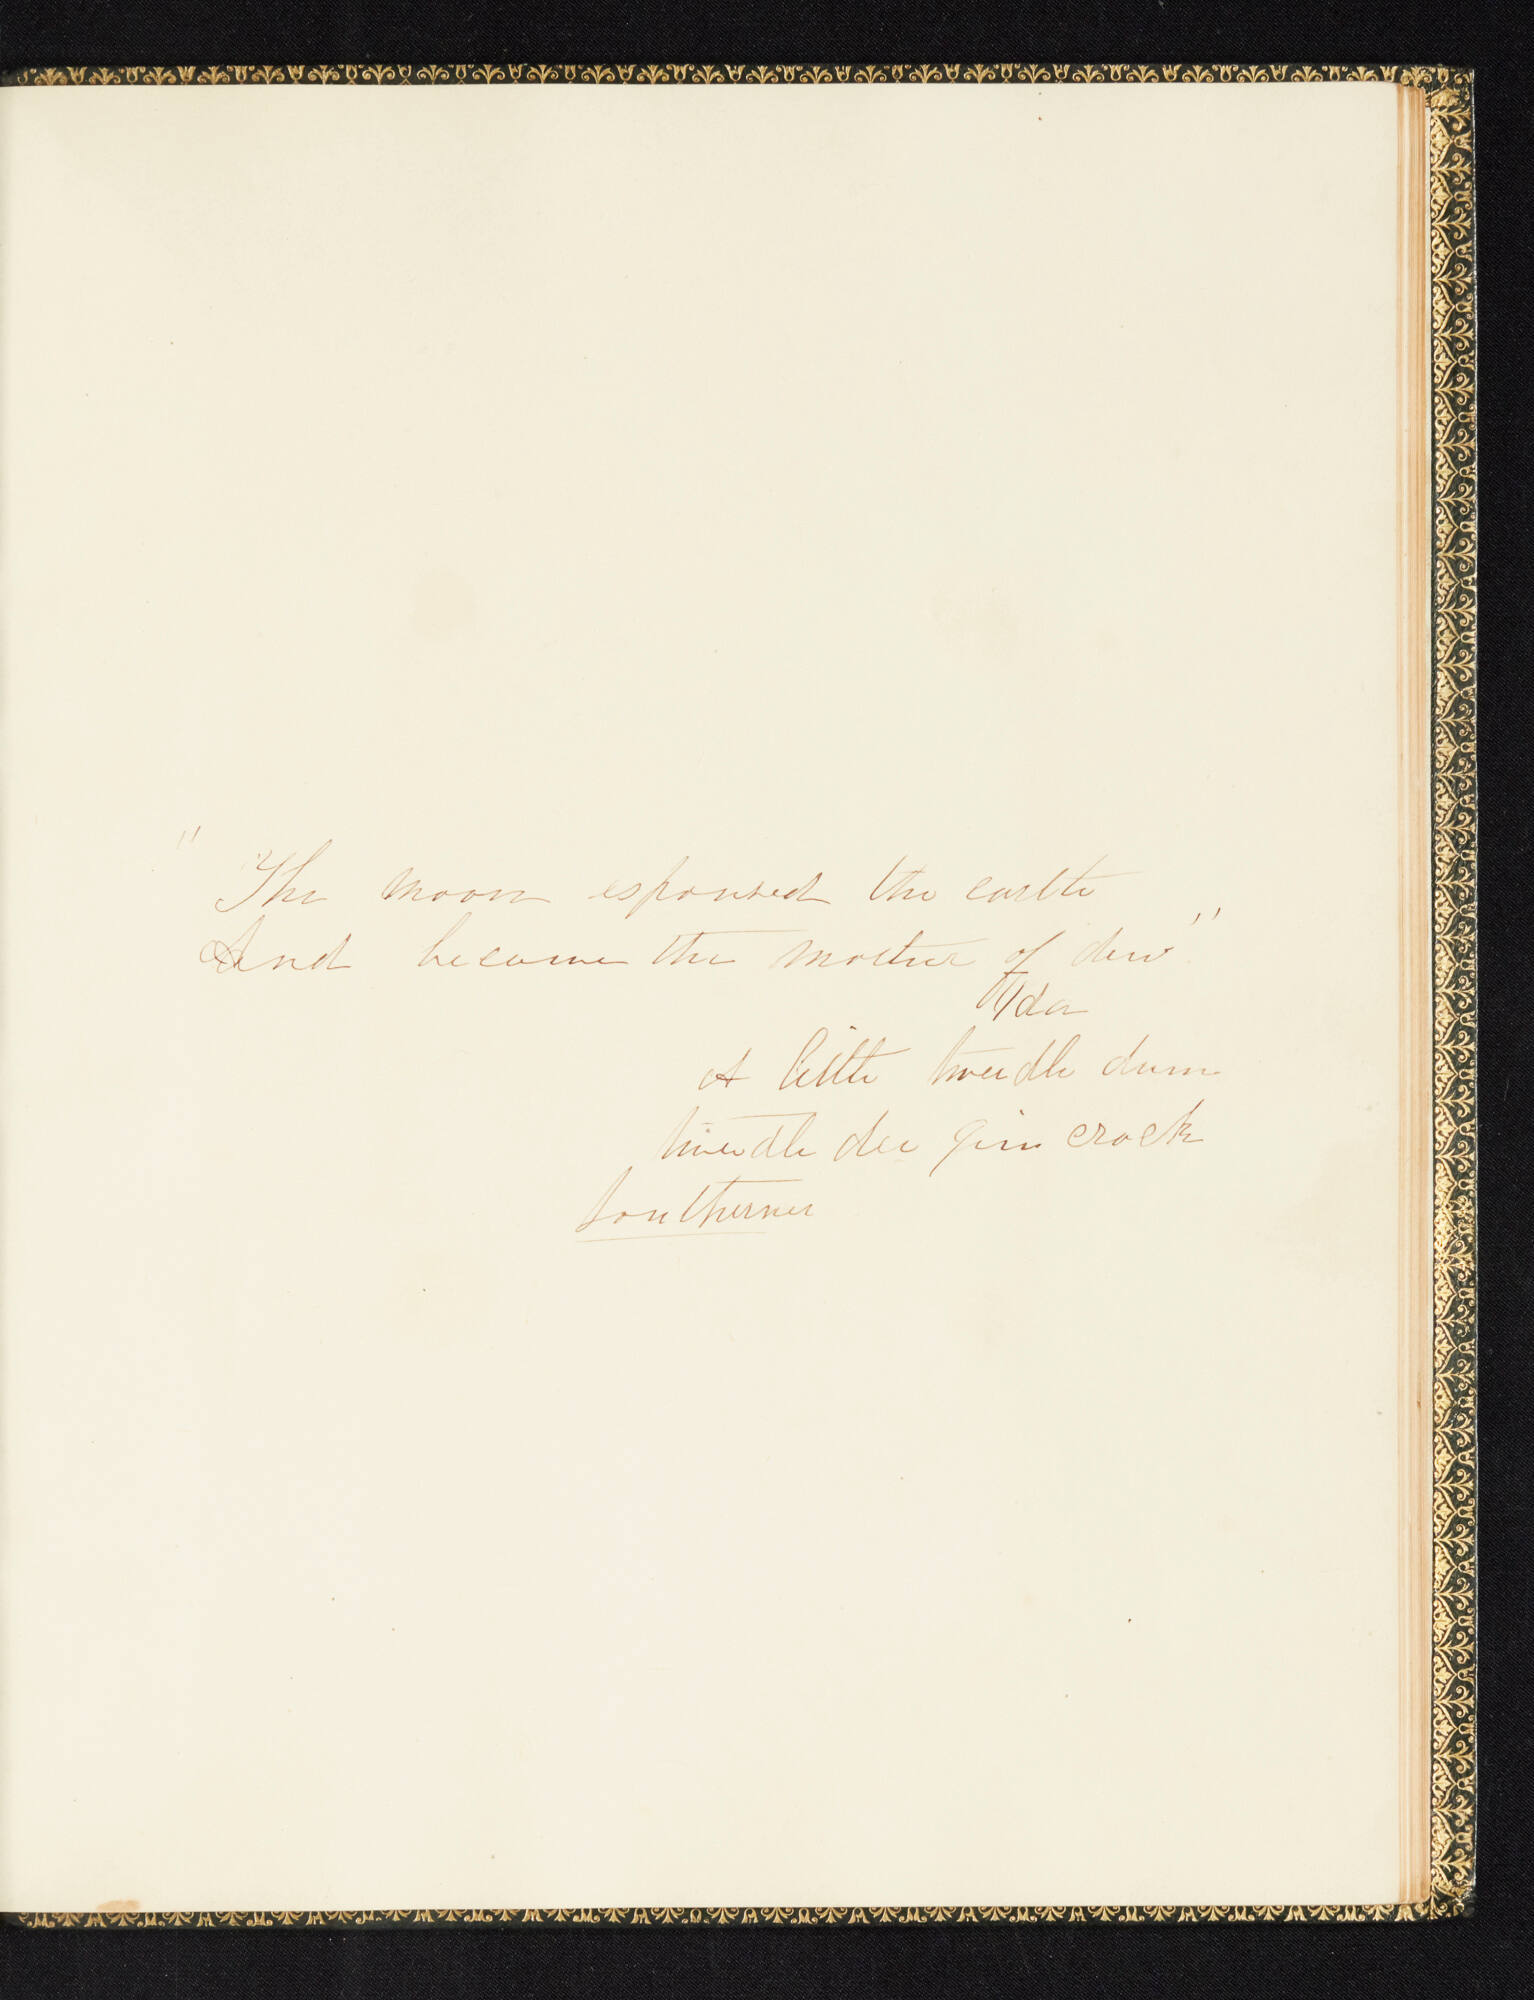 "The moon espoused the earth
And became the mother of dew"
Ida
A little tweedle dum
tweedle dee gim crack
Southerner